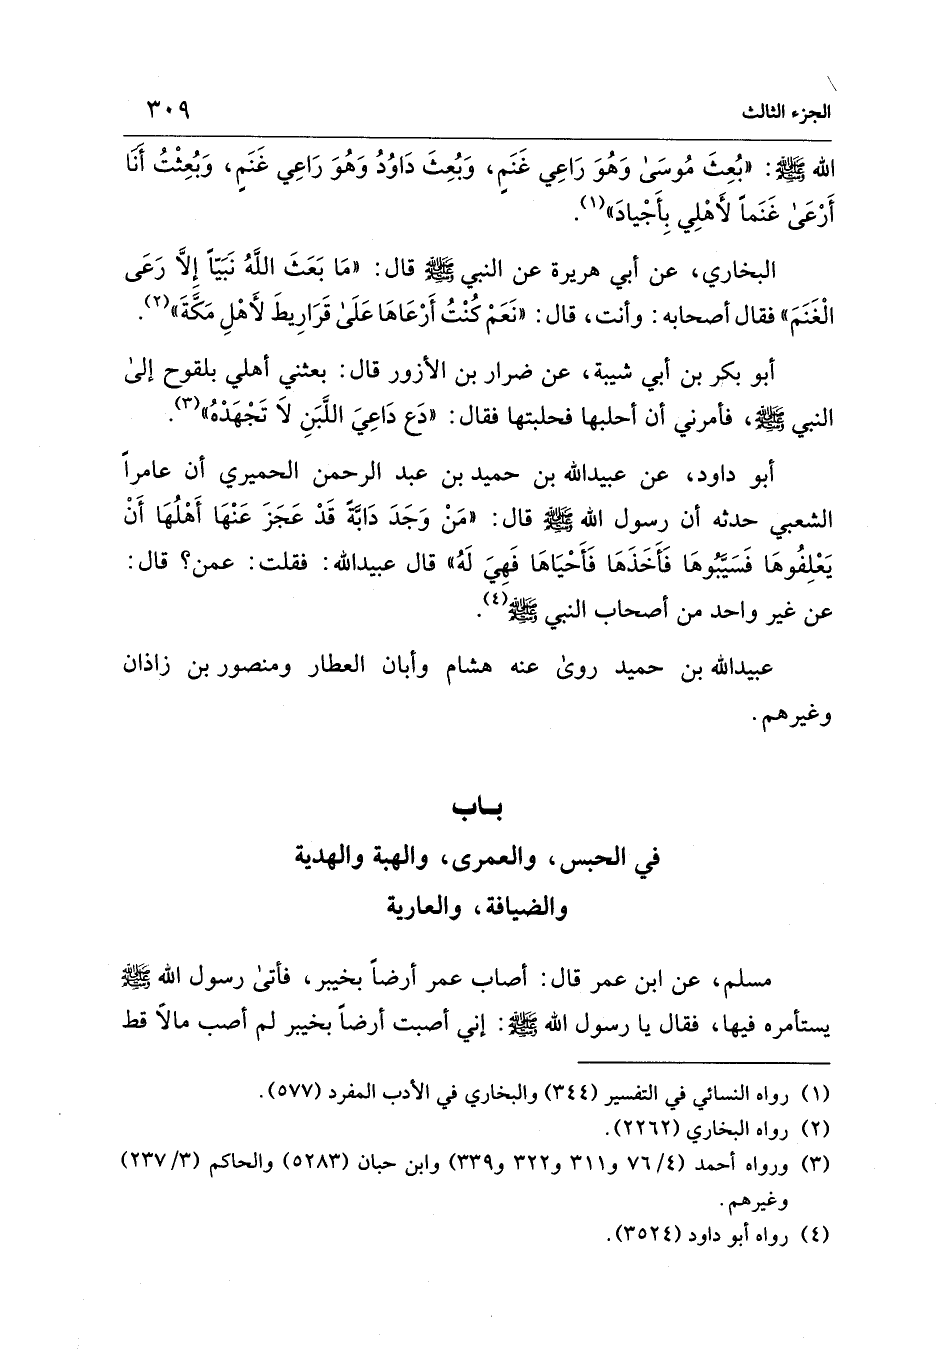 الجزء الثالث ٣٠٩
الله ﷺ: «بُعِثَ مُوسَىٰ وَهُوَ رَاعِي غَنَمٍ، وَبُعِثَ دَاوُدُ وَهُوَ رَاعِي غَنَمٍ، وَبُعِثْتُ أَنَا
أَرْعَىٰ غَنَماً لأَهْلِي بِأَجْيادَ»(١).
البخاري، عن أبي هريرة عن النبي ﷺ قال: «مَا بَعَثَ اللَّهُ نَبيّاً إلاَّ رَعَى
الْغَنَمَ» فقال أصحابه: وأنت، قال: «نَعَمْ كُنْتُ أَرْعَاهَا عَلَىٰ قَرَارِيطَ لأَهْلِ مَكَّةَ»(٢).
أبو بكر بن أبي شيبة، عن ضرار بن الأزور قال: بعثني أهلي بلقوح إلىٰ
النبي ﷺ، فأمرني أن أحلبها فحلبتها فقال: «دَع دَاعِيَ اللَّبَنِ لاَ تَجْهَدْهُ»(٣).
أبو داود، عن عبيدالله بن حميد بن عبد الرحمن الحميري أن عامراً
الشعبي حدثه أن رسول الله ﷺ قال: «مَنْ وَجَدَ دَابَّةً قَدْ عَجَزَ عَنْهَا أَهْلُهَا أَنْ
يَعْلِفُوهَا فَسَيَّبُوهَا فَأَخَذَهَا فَأَحْيَاهَا فَهِيَ لَهُ» قال عبيدالله: فقلت: عمن؟ قال:
عن غير واحد من أصحاب النبي ﷺ(٤).
عبيدالله بن حميد روىٰ عنه هشام وأبان العطار ومنصور بن زاذان
وغيرهم.
بـاب
في الحبس، والعمرى، والهبة والهدية
والضيافة، والعارية
مسلم، عن ابن عمر قال: أصاب عمر أرضاً بخيبر، فأتىٰ رسول الله ﷺ
يستأمره فيها، فقال يا رسول الله ﷺ: إني أصبت أرضاً بخيبر لم أصب مالاً قط
(١) رواه النسائي في التفسير (٣٤٤) والبخاري في الأدب المفرد (٥٧٧).
(٢) رواه البخاري (٢٢٦٢).
(٣) ورواه أحمد (٤/ ٧٦ و٣١١ و٣٢٢ و٣٣٩) وابن حبان (٥٢٨٣) والحاكم (٣/ ٢٣٧)
وغيرهم.
(٤) رواه أبو داود (٣٥٢٤).